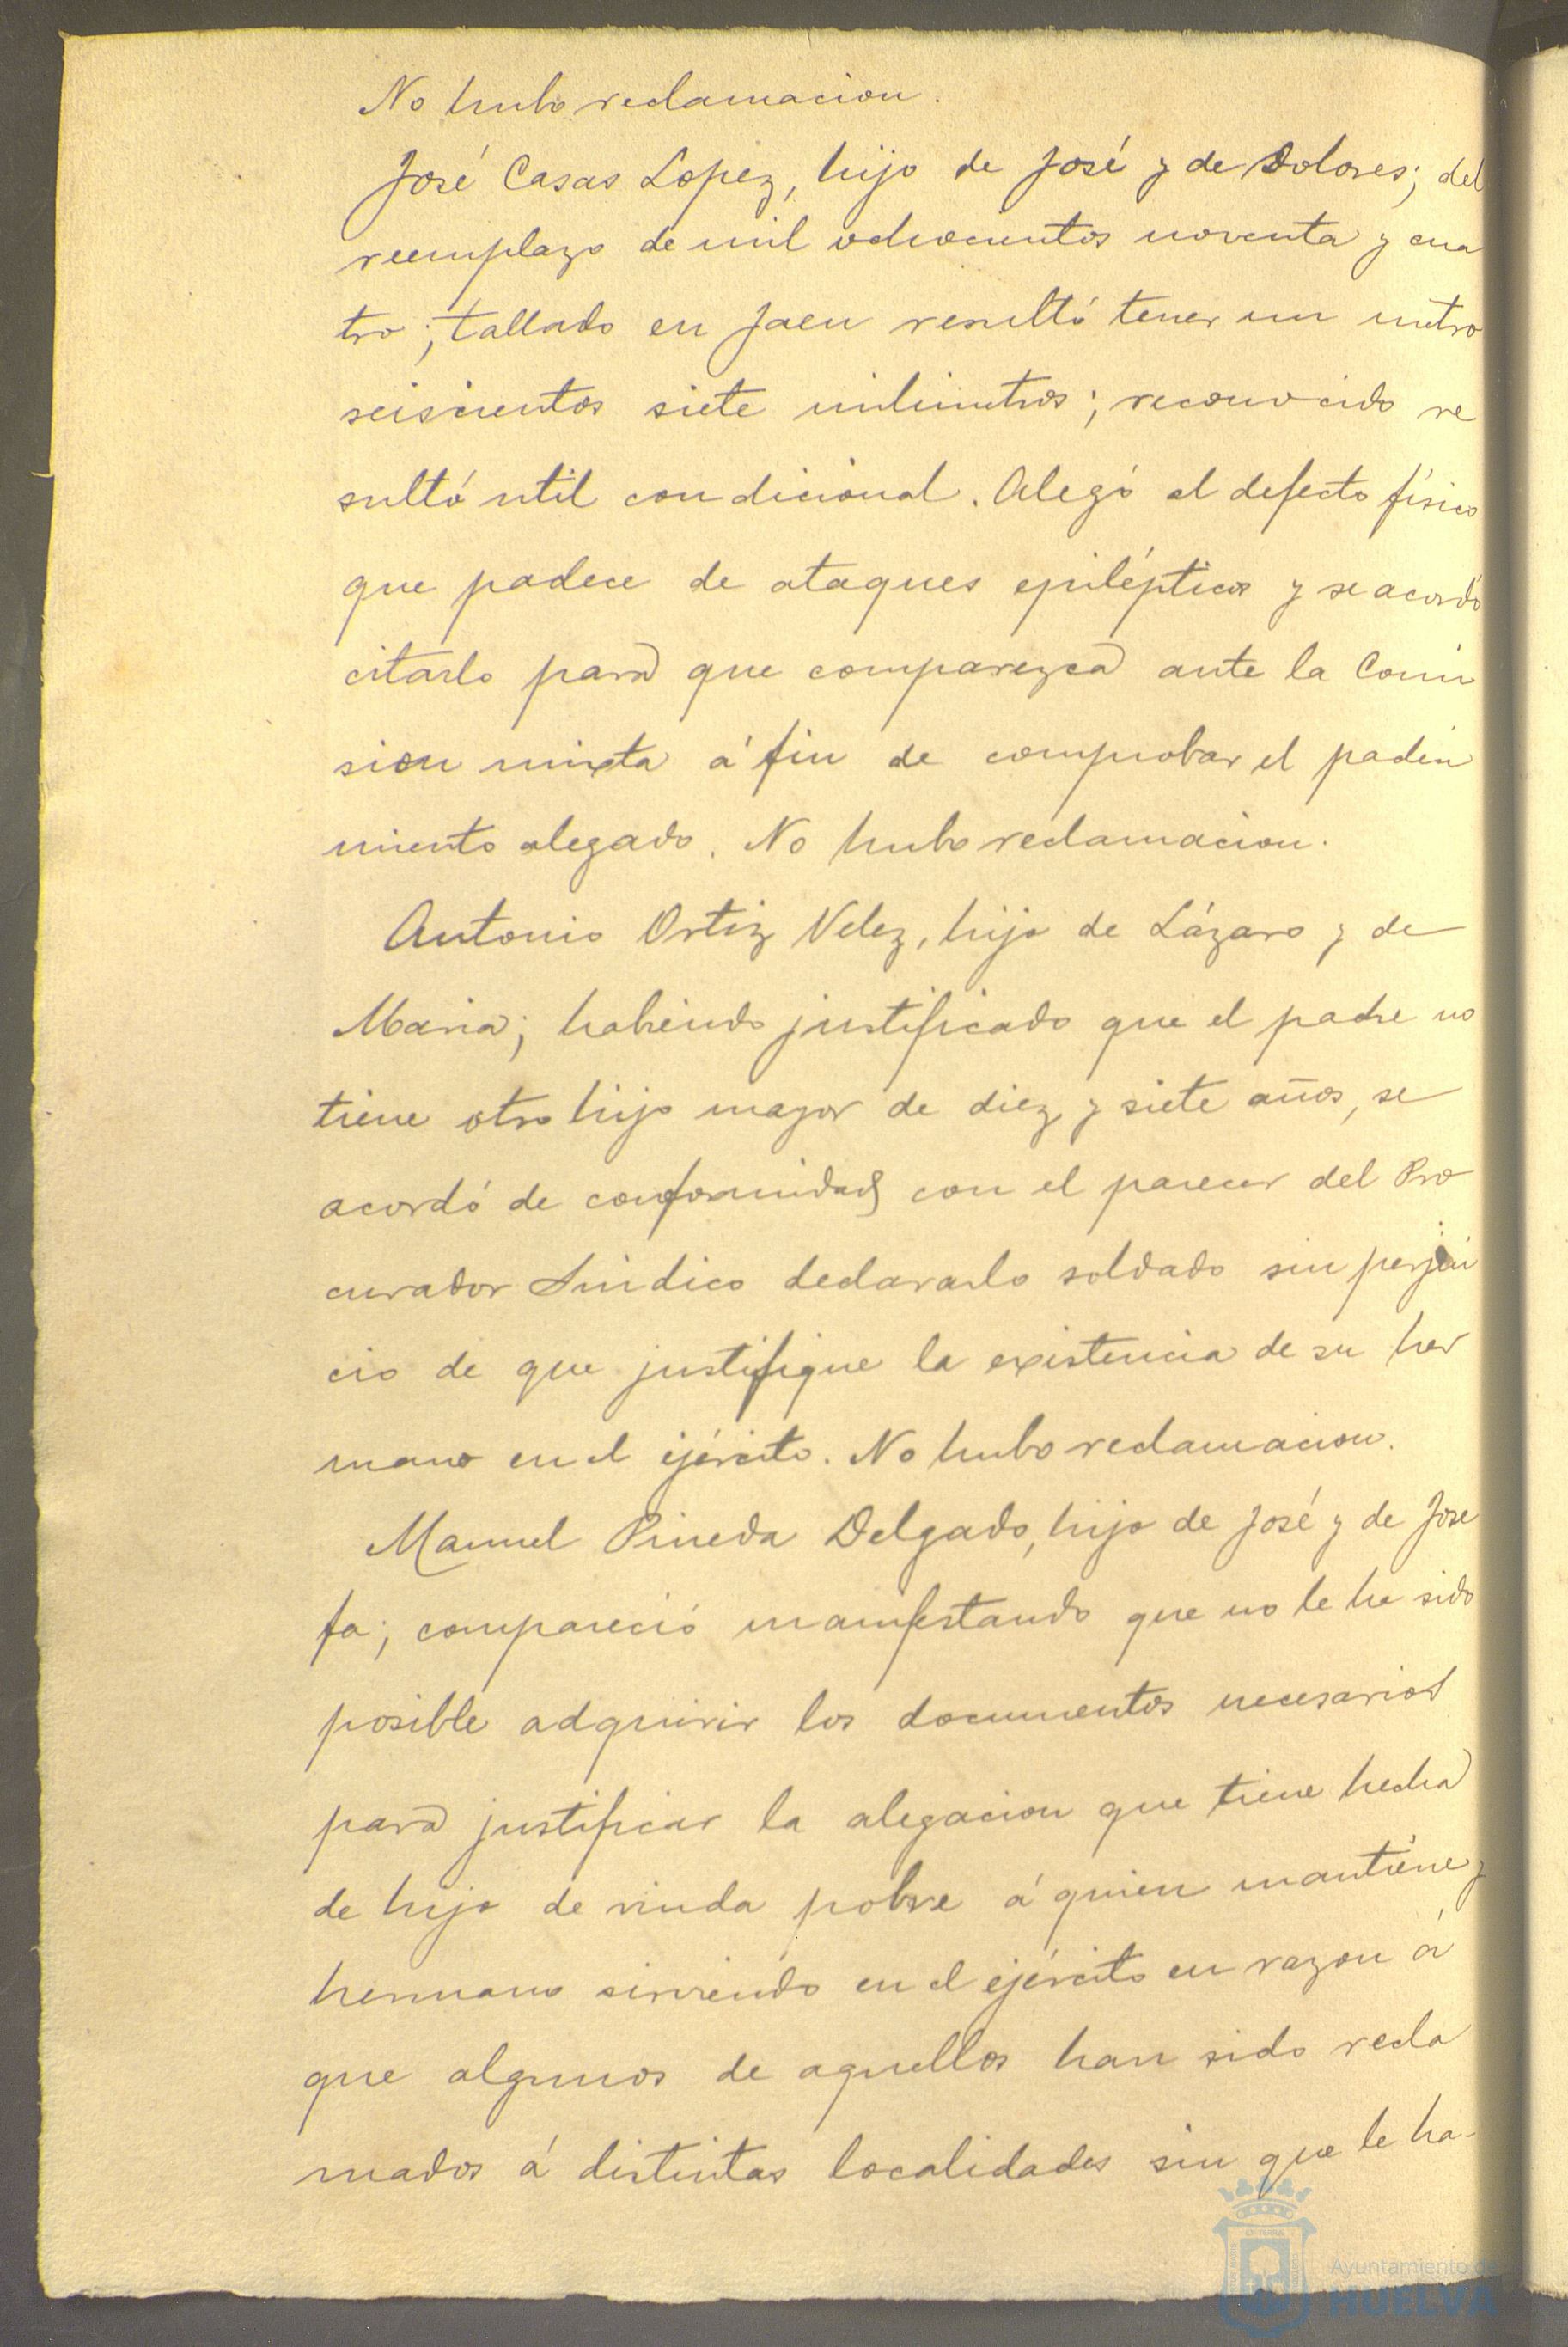 No hubo reclamacion.
José Casas Lopez, hijo de José y de Dolores; del
reemplazo de mil ochocientos noventa y cua
tro; tallado en Jaen resultó tener un metro
seiscientos siete milimetros; reconocido re
sultó util condicional. Alegó el defecto físico
que padece de ataques epilépticos y se acordó
citarlo para que comparezca ante la Comi
sion mixta á fin de comprobar el padeci
miento alegado. No hubo reclamacion.
Antonio Ortiz Velez, hijo de Lázaro y de
Maria; habiendo justificado que el padre no
tiene otro hijo mayor de diez y siete años, se
acordó de conformidad con el parecer del Pro
curador Sindico declararlo soldado sin perjui
cio de que justifique la existencia de su her
mano en el ejército. No hubo reclamacion.
Manuel Pineda Delgado, hijo de José y de Jose
fa; compareció manifestando que no le ha sido
posible adquirir los documentos necesarios
para justificar la alegacion que tiene hecha
de hijo de viuda pobre á quien mantiene y
hermano sirviendo en el ejército en razon á
que algunos de aquellos han sido recla
mados á distintas localidades sin que le ha-
Ayuntamiento de
HUELVA